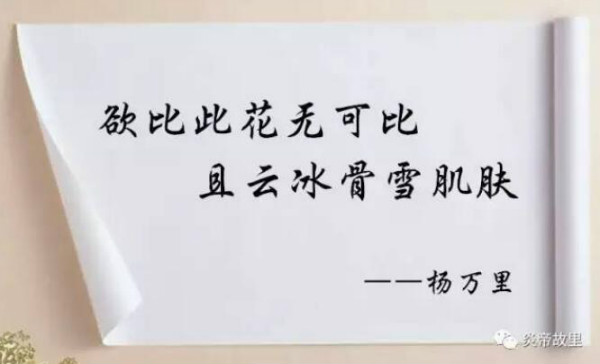 欲比此花无可比
且云冰骨雪肌肤
——杨万里
炎帝故里